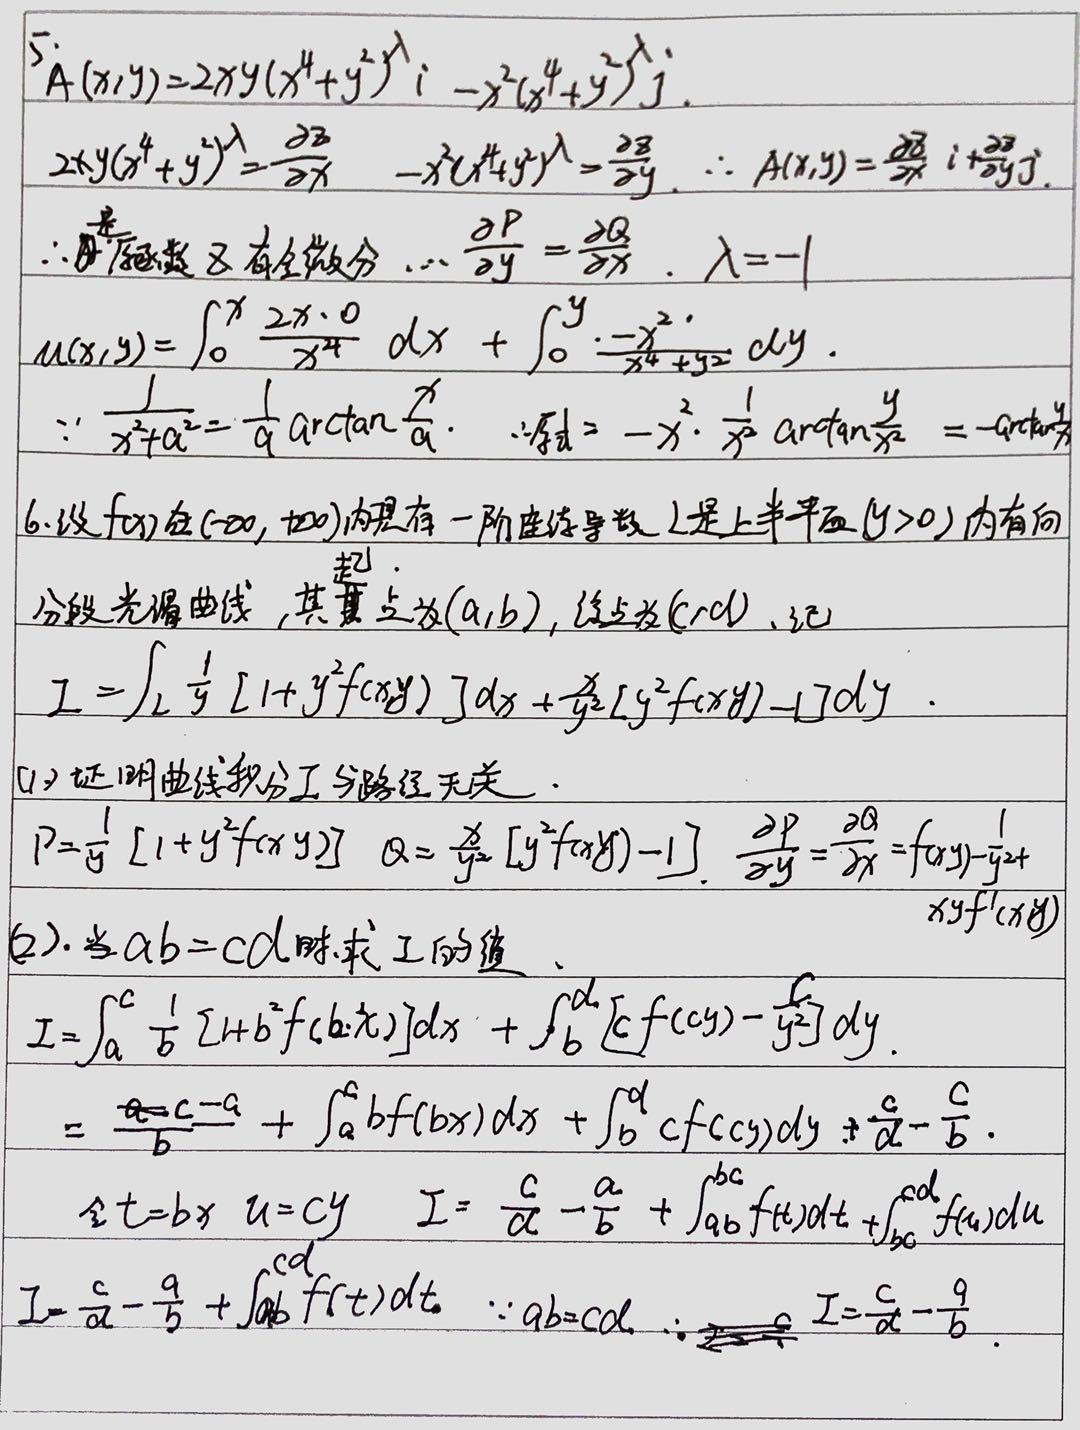 5. A(x,y)=2xy(x⁴+y²)^λ i -x²(x⁴+y²)^λ j.
2xy(x⁴+y²)^λ=∂z/∂x -x²(x⁴+y²)^λ=∂z/∂y. ∴ A(x,y)=∂z/∂x i+∂z/∂y j.
∴是原函数 且有全微分 ∴ ∂P/∂y=∂Q/∂x. λ=-1
u(x,y)=∫₀^x (2x·0)/x⁴ dx + ∫₀^y -x²/(x⁴+y²) dy.
∵ 1/(x²+a²)=1/a arctan x/a. ∴原式= -x²·1/x² arctan y/x² =-arctan y/x²
6.设f(x)在(-∞,+∞)内具有一阶连续导数 L是上半平面(y>0)内有向
分段光滑曲线,其起点为(a,b),终点为(c,d).记
I=∫_L 1/y [1+y²f(xy)]dx+x/y²[y²f(xy)-1]dy.
(1)证明曲线积分I与路径无关.
P=1/y [1+y²f(xy)] Q=x/y² [y²f(xy)-1]. ∂P/∂y=∂Q/∂x=f(xy)-1/y²+
xyf'(xy)
(2).当ab=cd时.求I的值.
I=∫_a^c 1/b [1+b²f(bx)]dx + ∫_b^d [cf(cy)-c/y²]dy.
= (c-a)/b + ∫_a^c bf(bx)dx + ∫_b^d cf(cy)dy + c/d - c/b.
令t=bx u=cy I= c/d - a/b + ∫_ab^bc f(t)dt+∫_bc^cd f(u)du
I=c/d-a/b+∫_ab^cd f(t)dt. ∵ab=cd. ∴ I=c/d-a/b.